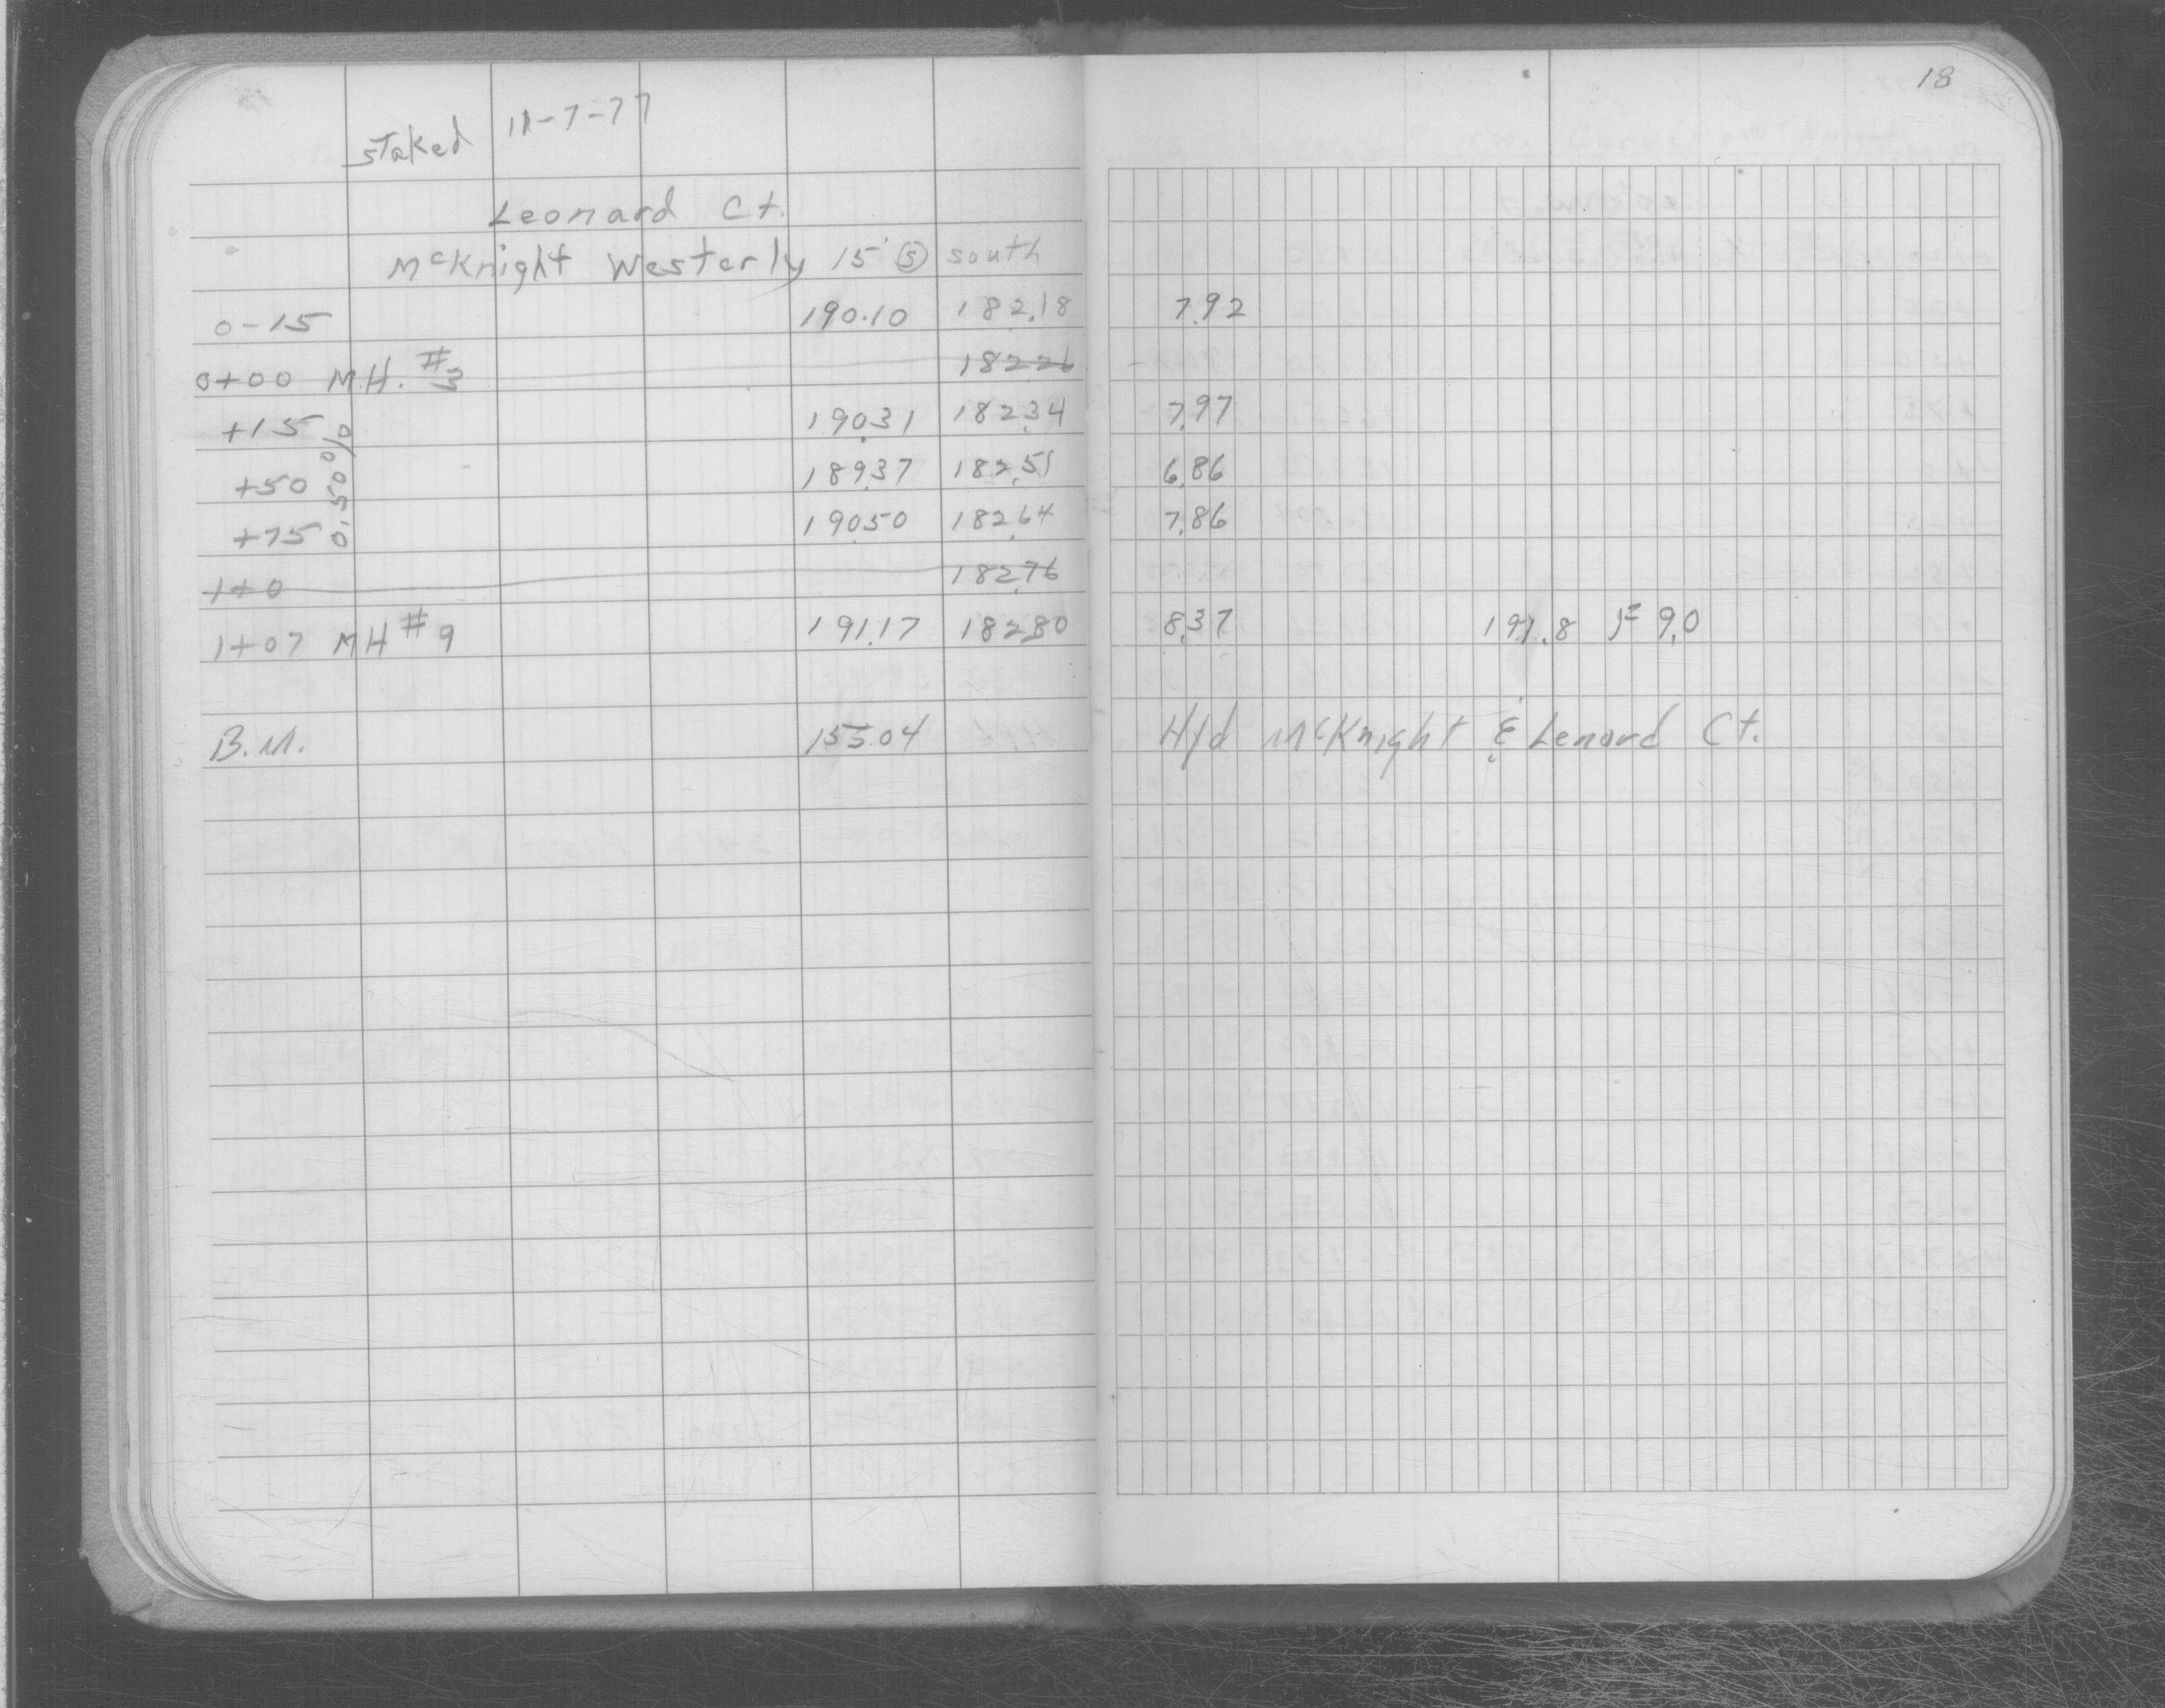 18
staked 11-7-77
Leonard Ct.
McKnight Westerly 15' Ⓢ south
0-15 190.10 182.18 7.92
0+00 M.H. #3 182.26
+15 190.31 182.34 7.97
+50 189.37 182.51 6.86
+75 190.50 182.64 7.86
0.50%
1+0 182.76
1+07 MH #9 191.17 182.80 8.37 191.8 9.0
B.M. 155.04 Hyd McKnight & Lenard Ct.